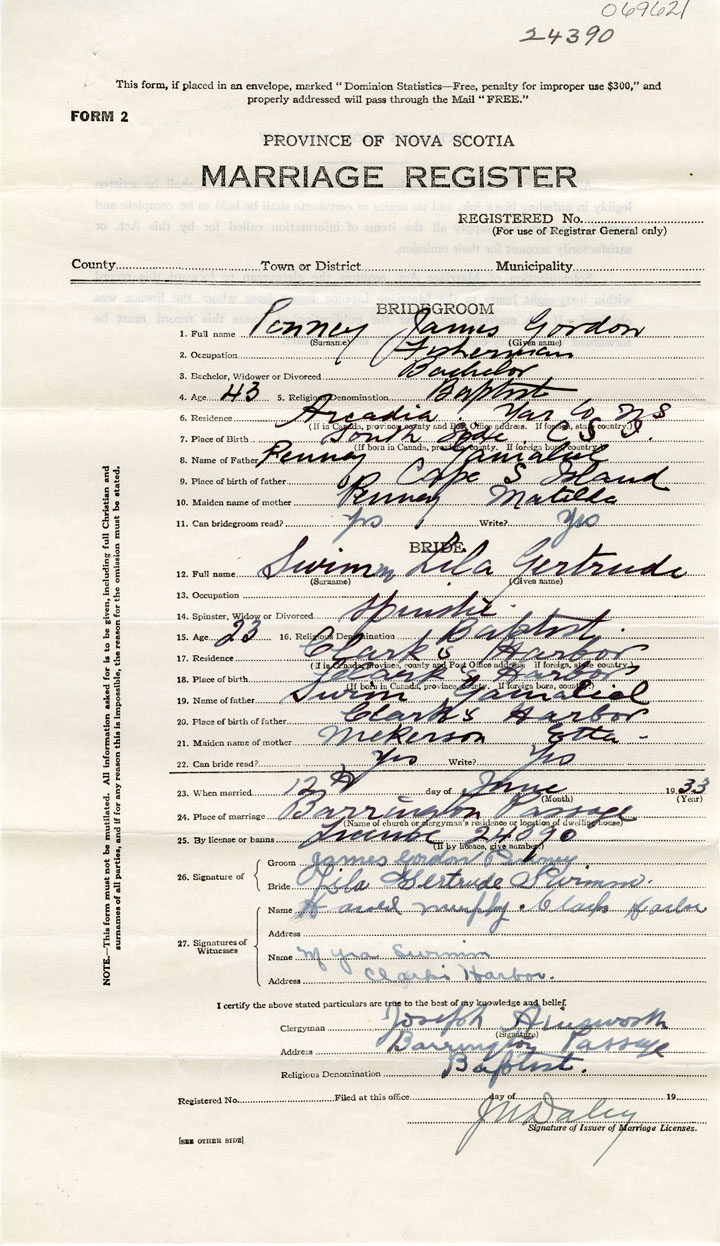 069621
24390
This form, if placed in an envelope, marked "Dominion Statistics—Free, penalty for improper use $300," and
properly addressed will pass through the Mail "FREE."
FORM 2
PROVINCE OF NOVA SCOTIA
MARRIAGE REGISTER
REGISTERED No.
(For use of Registrar General only)
County Town or District Municipality
BRIDEGROOM
1. Full name Penney James Gordon
(Surname) (Given name)
2. Occupation Fisherman
3. Bachelor, Widower or Divorced Bachelor
4. Age 43 5. Religious Denomination Baptist
6. Residence Arcadia Yar Co NS
(If in Canada, province, county and Post Office address. If foreign, state country.)
7. Place of Birth South Side C. S. I.
(If born in Canada, province, county. If foreign born, country.)
8. Name of Father Penney Gamaliel
9. Place of birth of father Cape S Island
10. Maiden name of mother Penney Matilda
11. Can bridegroom read? Yes Write? Yes
BRIDE
12. Full name Swimm Lila Gertrude
(Surname) (Given name)
13. Occupation
14. Spinster, Widow or Divorced Spinster
15. Age 23 16. Religious Denomination Baptist
17. Residence Clark's Harbor
(If in Canada, province, county and Post Office address. If foreign, state country.)
18. Place of birth Clark's Harbor
(If born in Canada, province, county. If foreign born, country.)
19. Name of father Swim Gamaliel
20. Place of birth of father Clark's Harbor
21. Maiden name of mother Nickerson Etta -
22. Can bride read? Yes Write? Yes
23. When married 12th day of June 1933
(Month) (Year)
24. Place of marriage Barrington Passage
(Name of church or clergyman's residence or location of dwelling house)
25. By license or banns License 24390
(If by licence, give number)
26. Signature of Groom James Gordon Penney
Bride Lila Gertrude Swimm.
27. Signatures of Witnesses
Name Harold Murphy. Clarks Harbor
Address
Name Myra Swimm
Address Clarks Harbor.
I certify the above stated particulars are true to the best of my knowledge and belief.
Clergyman Joseph Ainsworth
(Signature)
Address Barrington Passage
Religious Denomination Baptist.
Registered No. Filed at this office day of 19
J M Daley
Signature of Issuer of Marriage Licenses.
[SEE OTHER SIDE]
NOTE.—This form must not be mutilated. All information asked for is to be given, including full Christian and
surnames of all parties, and if for any reason this is impossible, the reason for the omission must be stated.